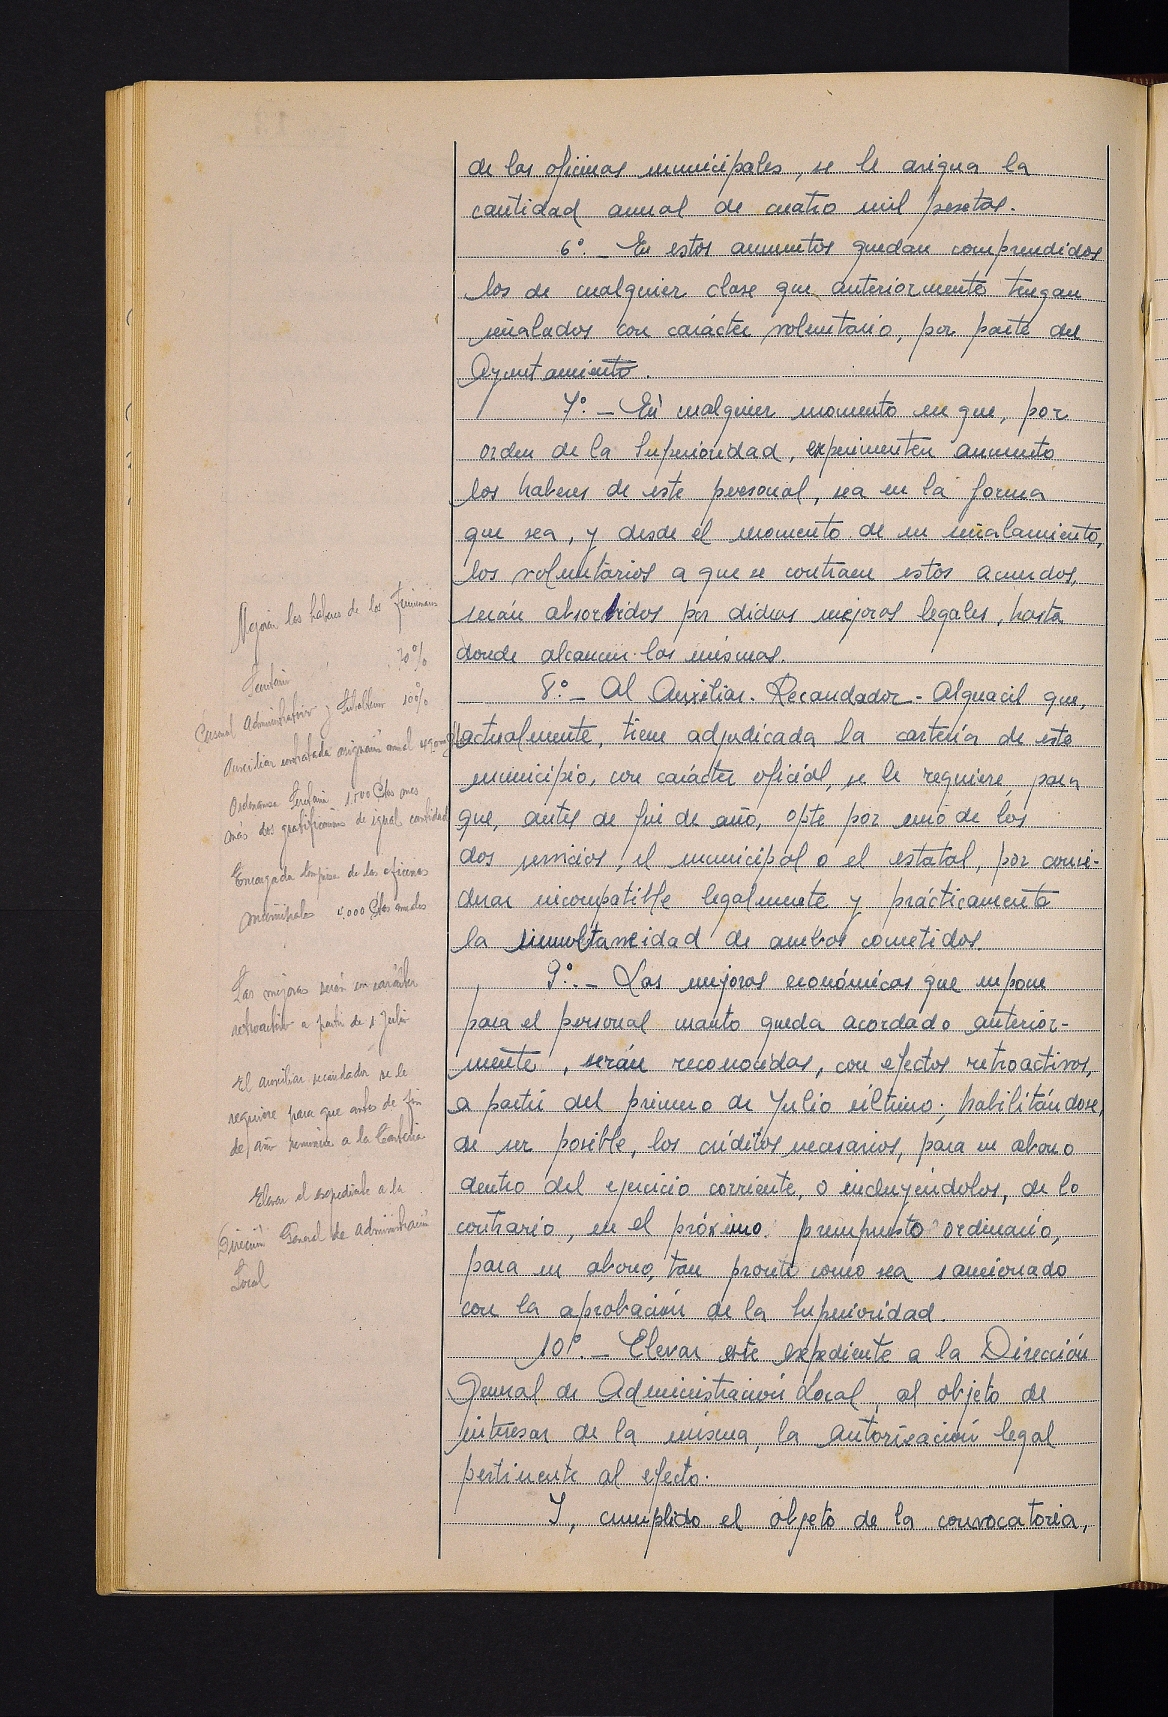 de las oficinas municipales, se le asigna la
cantidad anual de cuatro mil pesetas.
6º.- En estos aumentos quedan comprendidos
los de cualquier clase que anteriormente tengan
señalados con carácter voluntario, por parte del
Ayuntamiento.
7º.- En cualquier momento en que, por
orden de la Superioridad, experimenten aumento
los haberes de este personal, sea en la forma
que sea, y desde el momento de su señalamiento,
los voluntarios a que se contraen estos acuerdos,
serán absorbidos por dichas mejoras legales, hasta
donde alcancen las mismas.
8º.- Al Auxiliar-Recaudador-Alguacil que,
actualmente, tiene adjudicada la cartería de este
municipio, con carácter oficial, se le requiere, para
que, antes de fin de año, opte por uno de los
dos servicios, el municipal o el estatal, por consi-
derar incompatible legalmente y prácticamente
la simultaneidad de ambos cometidos.
9º.- Las mejoras económicas que supone
para el personal cuanto queda acordado anterior-
mente, serán reconocidas, con efectos retroactivos,
a partir del primero de Julio último; habilitándose,
de ser posible, los créditos necesarios, para su abono
dentro del ejercicio corriente, o incluyéndolos, de lo
contrario, en el próximo presupuesto ordinario,
para su abono, tan pronto como sea sancionado
con la aprobación de la Superioridad.
10º.- Elevar este expediente a la Dirección
General de Administración Local, al objeto de
interesar de la misma, la autorización legal
pertinente al efecto.
Y, cumplido el objeto de la convocatoria,
Mejorar los haberes de los funcionarios
Secretario
Personal Administrativo y Subalterno 100%
Auxiliar contratada asignación anual
Ordenanza Secretaría 1.500 Ptas mes
más dos gratificaciones de igual cantidad
Encargada limpieza de las oficinas
municipales 4.000 Ptas anuales
Las mejoras serán con carácter
retroactivo a partir de 1 Julio
El auxiliar recaudador se le
requiere para que antes de fin
de año renuncie a la Cartería
Elevar el expediente a la
Dirección General de Administración
Local